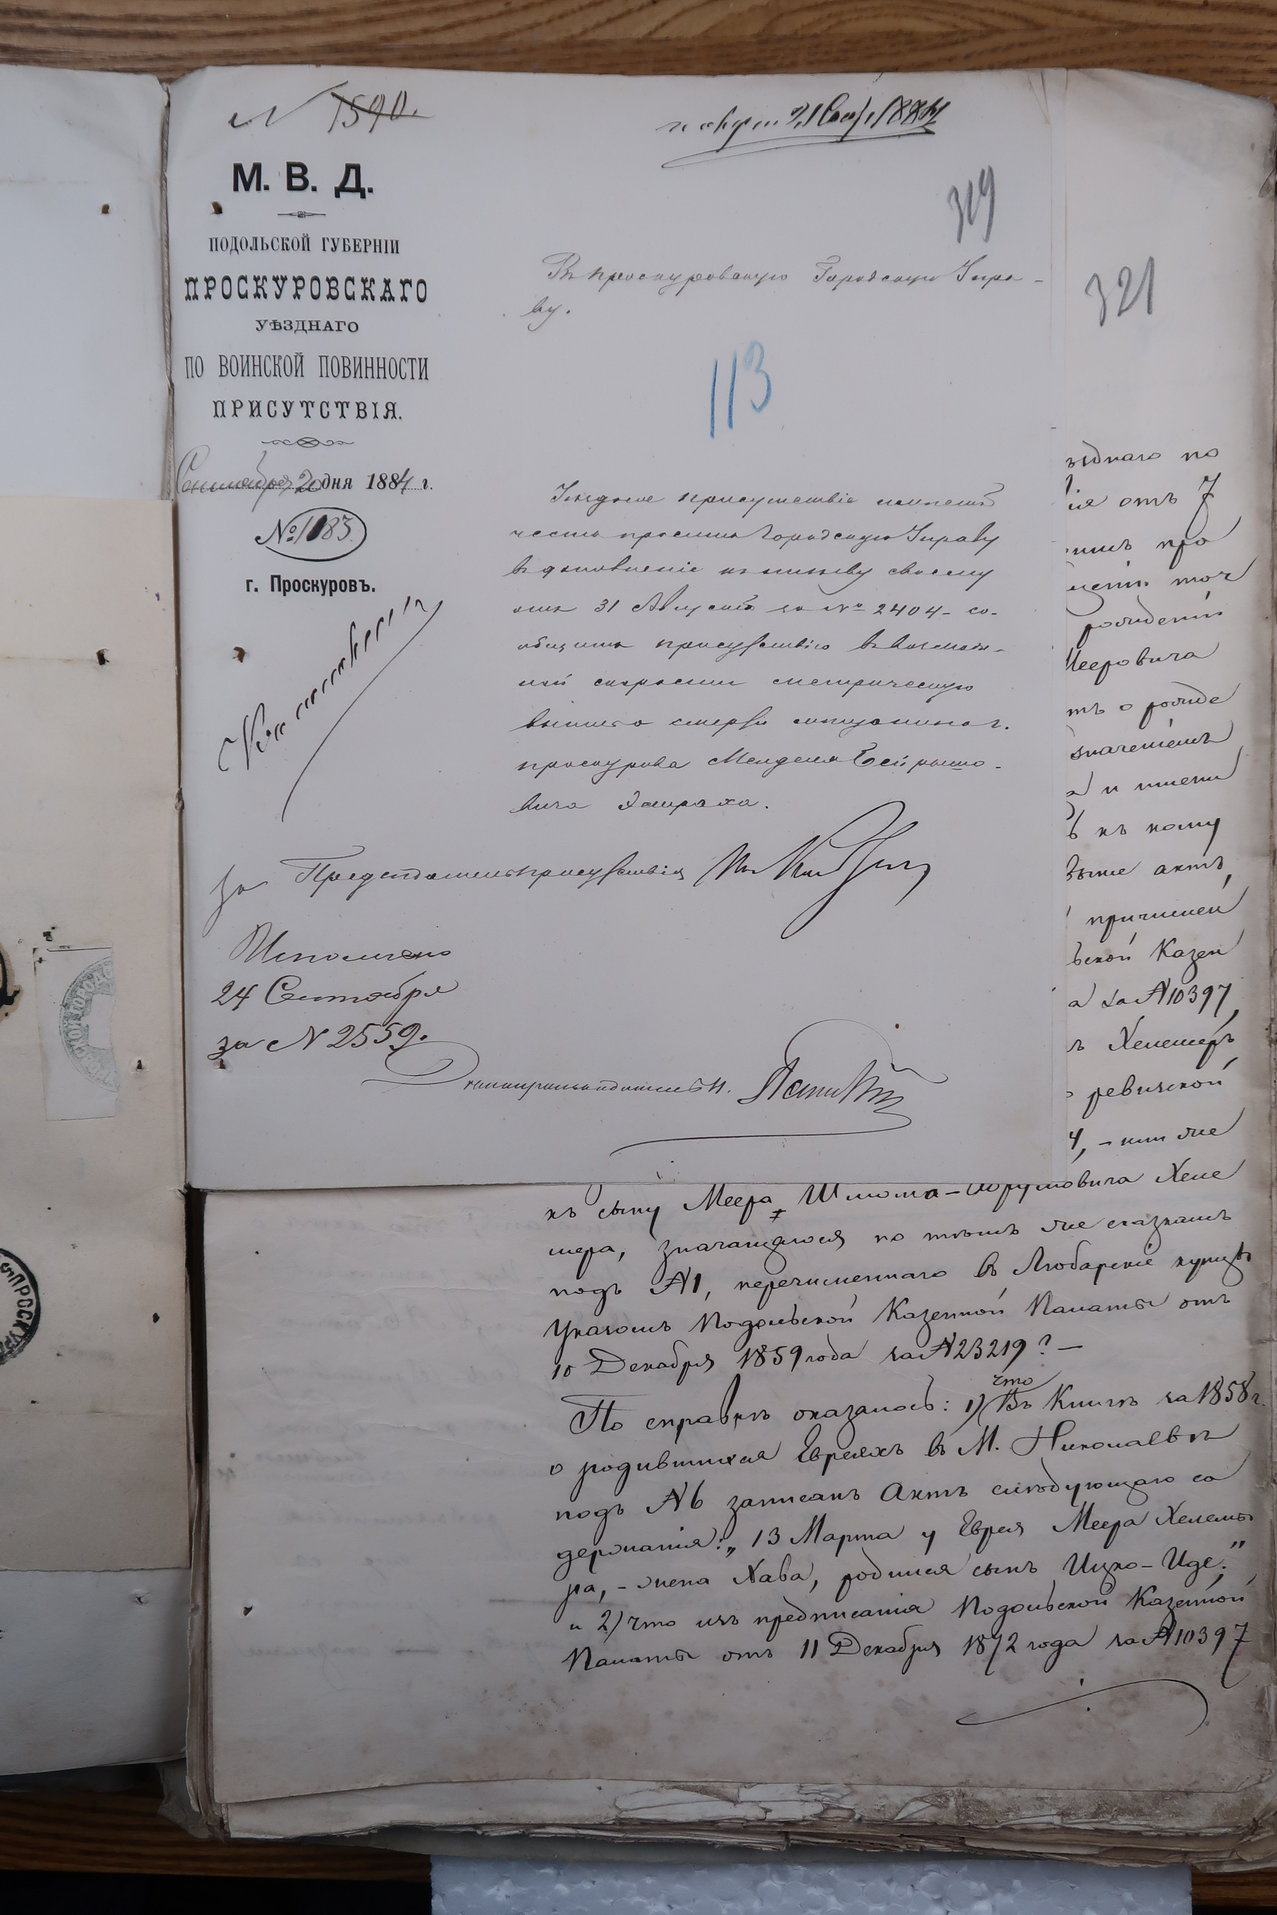 N 1590.
получ. 21 Сент. 1884
319
М. В. Д.
ПОДОЛЬСКОЙ ГУБЕРНІИ
ПРОСКУРОВСКАГО
УѢЗДНАГО
ПО ВОИНСКОЙ ПОВИННОСТИ
ПРИСУТСТВІЯ.
Сентября 20 дня 1884 г.
№ 1183.
г. Проскуровъ.
Въ Проскуровскую Городскую Упра-
ву.
113
Уѣздное присутствіе имѣетъ
честь просить Городскую Управу
въ дополненіе къ отзыву своему
отъ 31 Августа за № 2404 со-
общить присутствію въ возмож-
ной скорости метрическую
выпись о смерти мѣщанина г.
Проскурова Менделя
вича
за Предсѣдателя присутствія
Исполнено
24 Сентября
за N 2559.
Дѣлопроизводитель
321
ѣзднаго по
ія отъ 7
про
точ
рожденій
Мееровича
тъ о рожде
значеніемъ
а и имени
ъ къ кому
выше актъ,
причислен
ьской Казен
а за N 10397,
ъ Хелемеръ
ревизской
4, - или же
къ сыну Меера Шлома-Абрумовича Хеле
мера, значащагося по тѣмъ же сказкамъ
подъ N 1, перечисленнаго въ Любарскіе купцы
Указомъ Подольской Казенной Палаты отъ
10 Декабря 1859 года за N 23219? —
По справкѣ оказалось: 1) что Въ Книгѣ за 1858 г.
о родившихся Евреяхъ въ М. Николаевкѣ
подъ N 6 записанъ Актъ слѣдующаго со
держанія: „13 Марта у Еврея Меера Хелеме
ра, - жена Хава, родился сынъ Ицко-Иде."
и 2) что изъ предписанія Подольской Казенной
Палаты отъ 11 Декабря 1872 года за N 10397